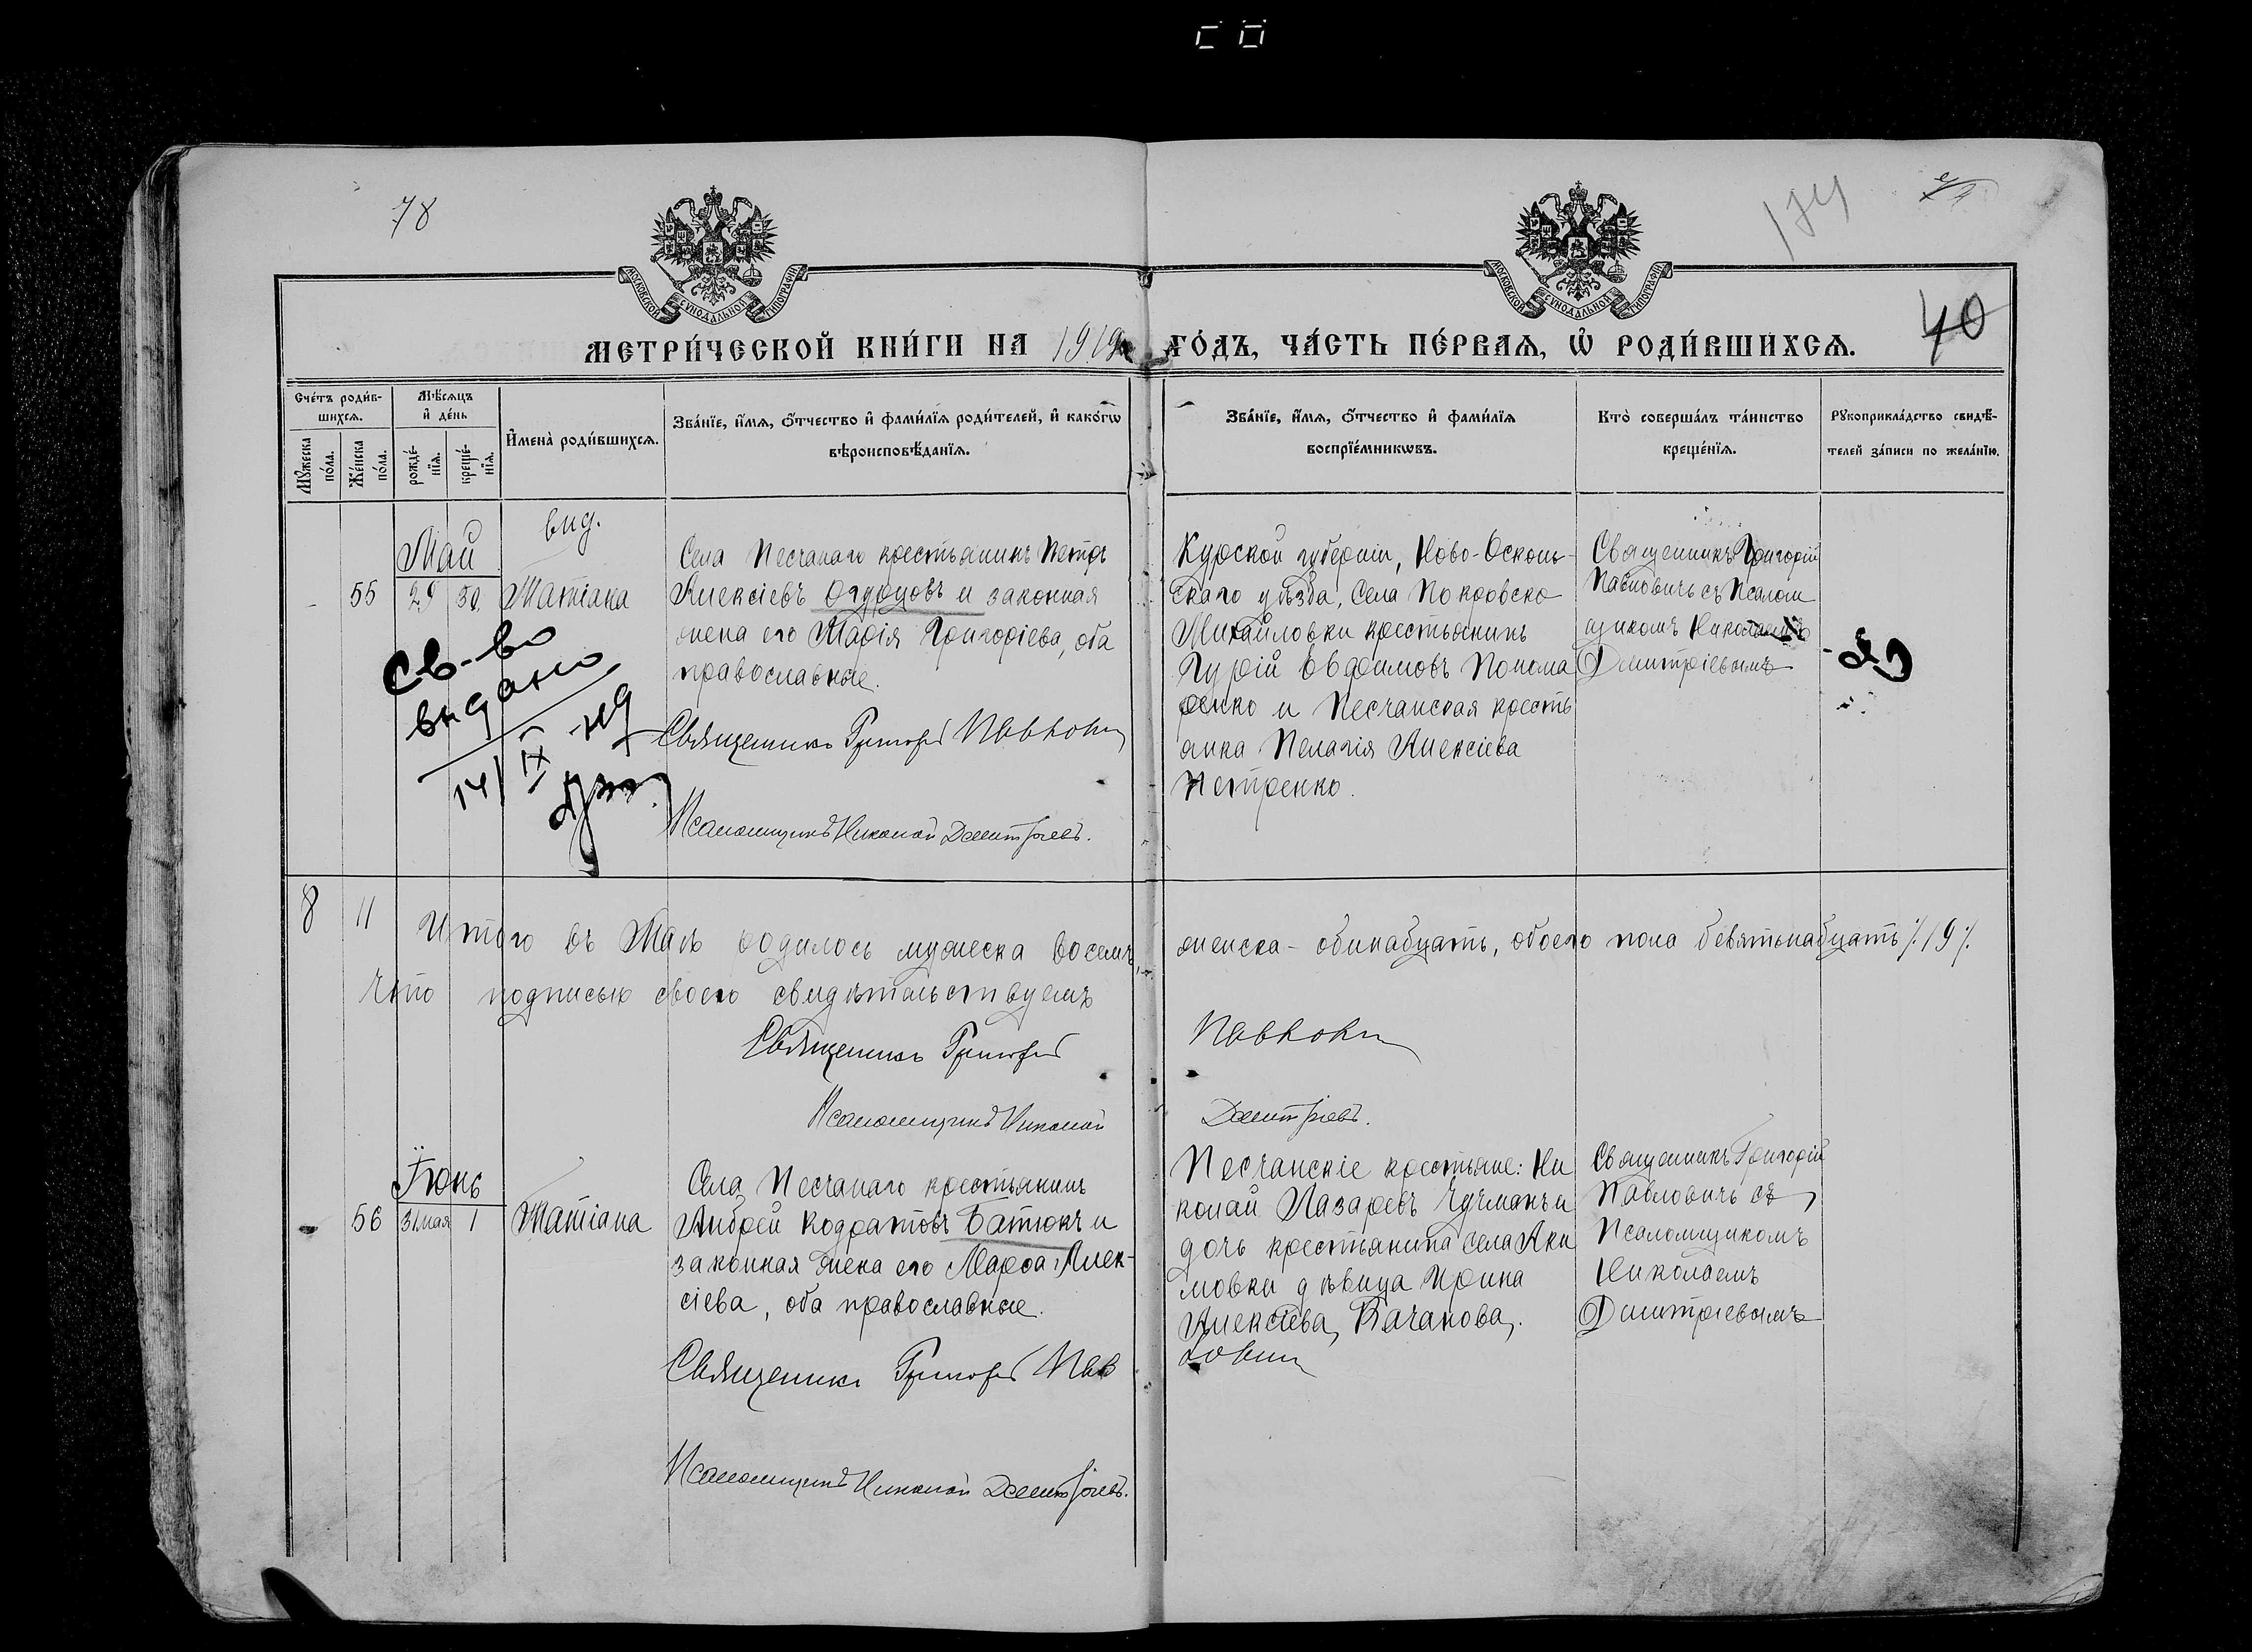 78
174
40
МОСКОВСКОЙ СѴНОДАЛЬНОЙ ТИПОГРАФІИ
МОСКОВСКОЙ СѴНОДАЛЬНОЙ ТИПОГРАФІИ
МЕТРИ́ЧЕСКОЙ КНИ́ГИ НА 1919 ГО́ДЪ, ЧА́СТЬ ПЕ́РВАѦ, Ѡ҆ РОДИ́ВШИХСѦ.
Сче́тъ роди́в-
шихсѧ.
Мꙋжеска по́ла.
Же́нска по́ла.
Мѣ́сѧцъ
и҆ де́нь
рожде́-
нїѧ.
креще́-
нїѧ.
И҆мена̀ роди́вшихсѧ.
Зва́нїе, и҆́мѧ, ѻ҆́тчество и҆ фами́лїѧ роди́телей, и҆ како́гѡ
вѣроисповѣ́данїѧ.
Зва́нїе, и҆́мѧ, ѻ҆́тчество и҆ фами́лїѧ
воспрїе́мникѡвъ.
Кто̀ соверша́лъ та́инство
креще́нїѧ.
Рꙋкоприкла́дство свидѣ́-
телей за́писи по жела́нїю.
вид.
Май
55 29 30. Татіана
Св-во
выдано
14/IX
Села Песчанаго крестьянинъ Петръ
Алексіевъ Огурцовъ и законная
жена его Марія Григоріева, оба
православные.
Священникъ Григорій Павлович
Псаломщикъ Николай Дмитріевъ.
Курской губерніи, Ново-Осколь-
скаго уѣзда, села Покровско
Михайловки крестьянинъ
Гурій Евфимовъ Понома
ренко и Песчанская кресть
янка Пелагія Алексіева
Петренко.
Священникъ Григорій
Павловичъ съ Псалом
щикомъ Николаемъ
Дмитріевымъ
8 11 Итого въ Маѣ родилось мужеска восемь, женска - одинадцать, обоего пола девятьнадцать ∕.19∕.
Что подписью своею свидѣтельствуемъ
Священникъ Григорій Павлович
Псаломщикъ Николай Дмитріевъ.
Іюнь
56 31.мая 1 Татіана
Села Песчанаго крестьянинъ
Андрей Кодратовъ Батюкъ и
законная жена его Марфа Алек-
сіева, оба православные.
Священникъ Григорій Павлович
Псаломщикъ Николай Дмитріевъ.
Песчанскіе крестьяне: Ни
колай Лазаревъ Чучманъ и
дочь крестьянина села Аки
мовки дѣвица Ирина
Алексіева Качанова.
Священникъ Григорій
Павловичъ съ
Псаломщикомъ
Николаемъ
Дмитріевымъ